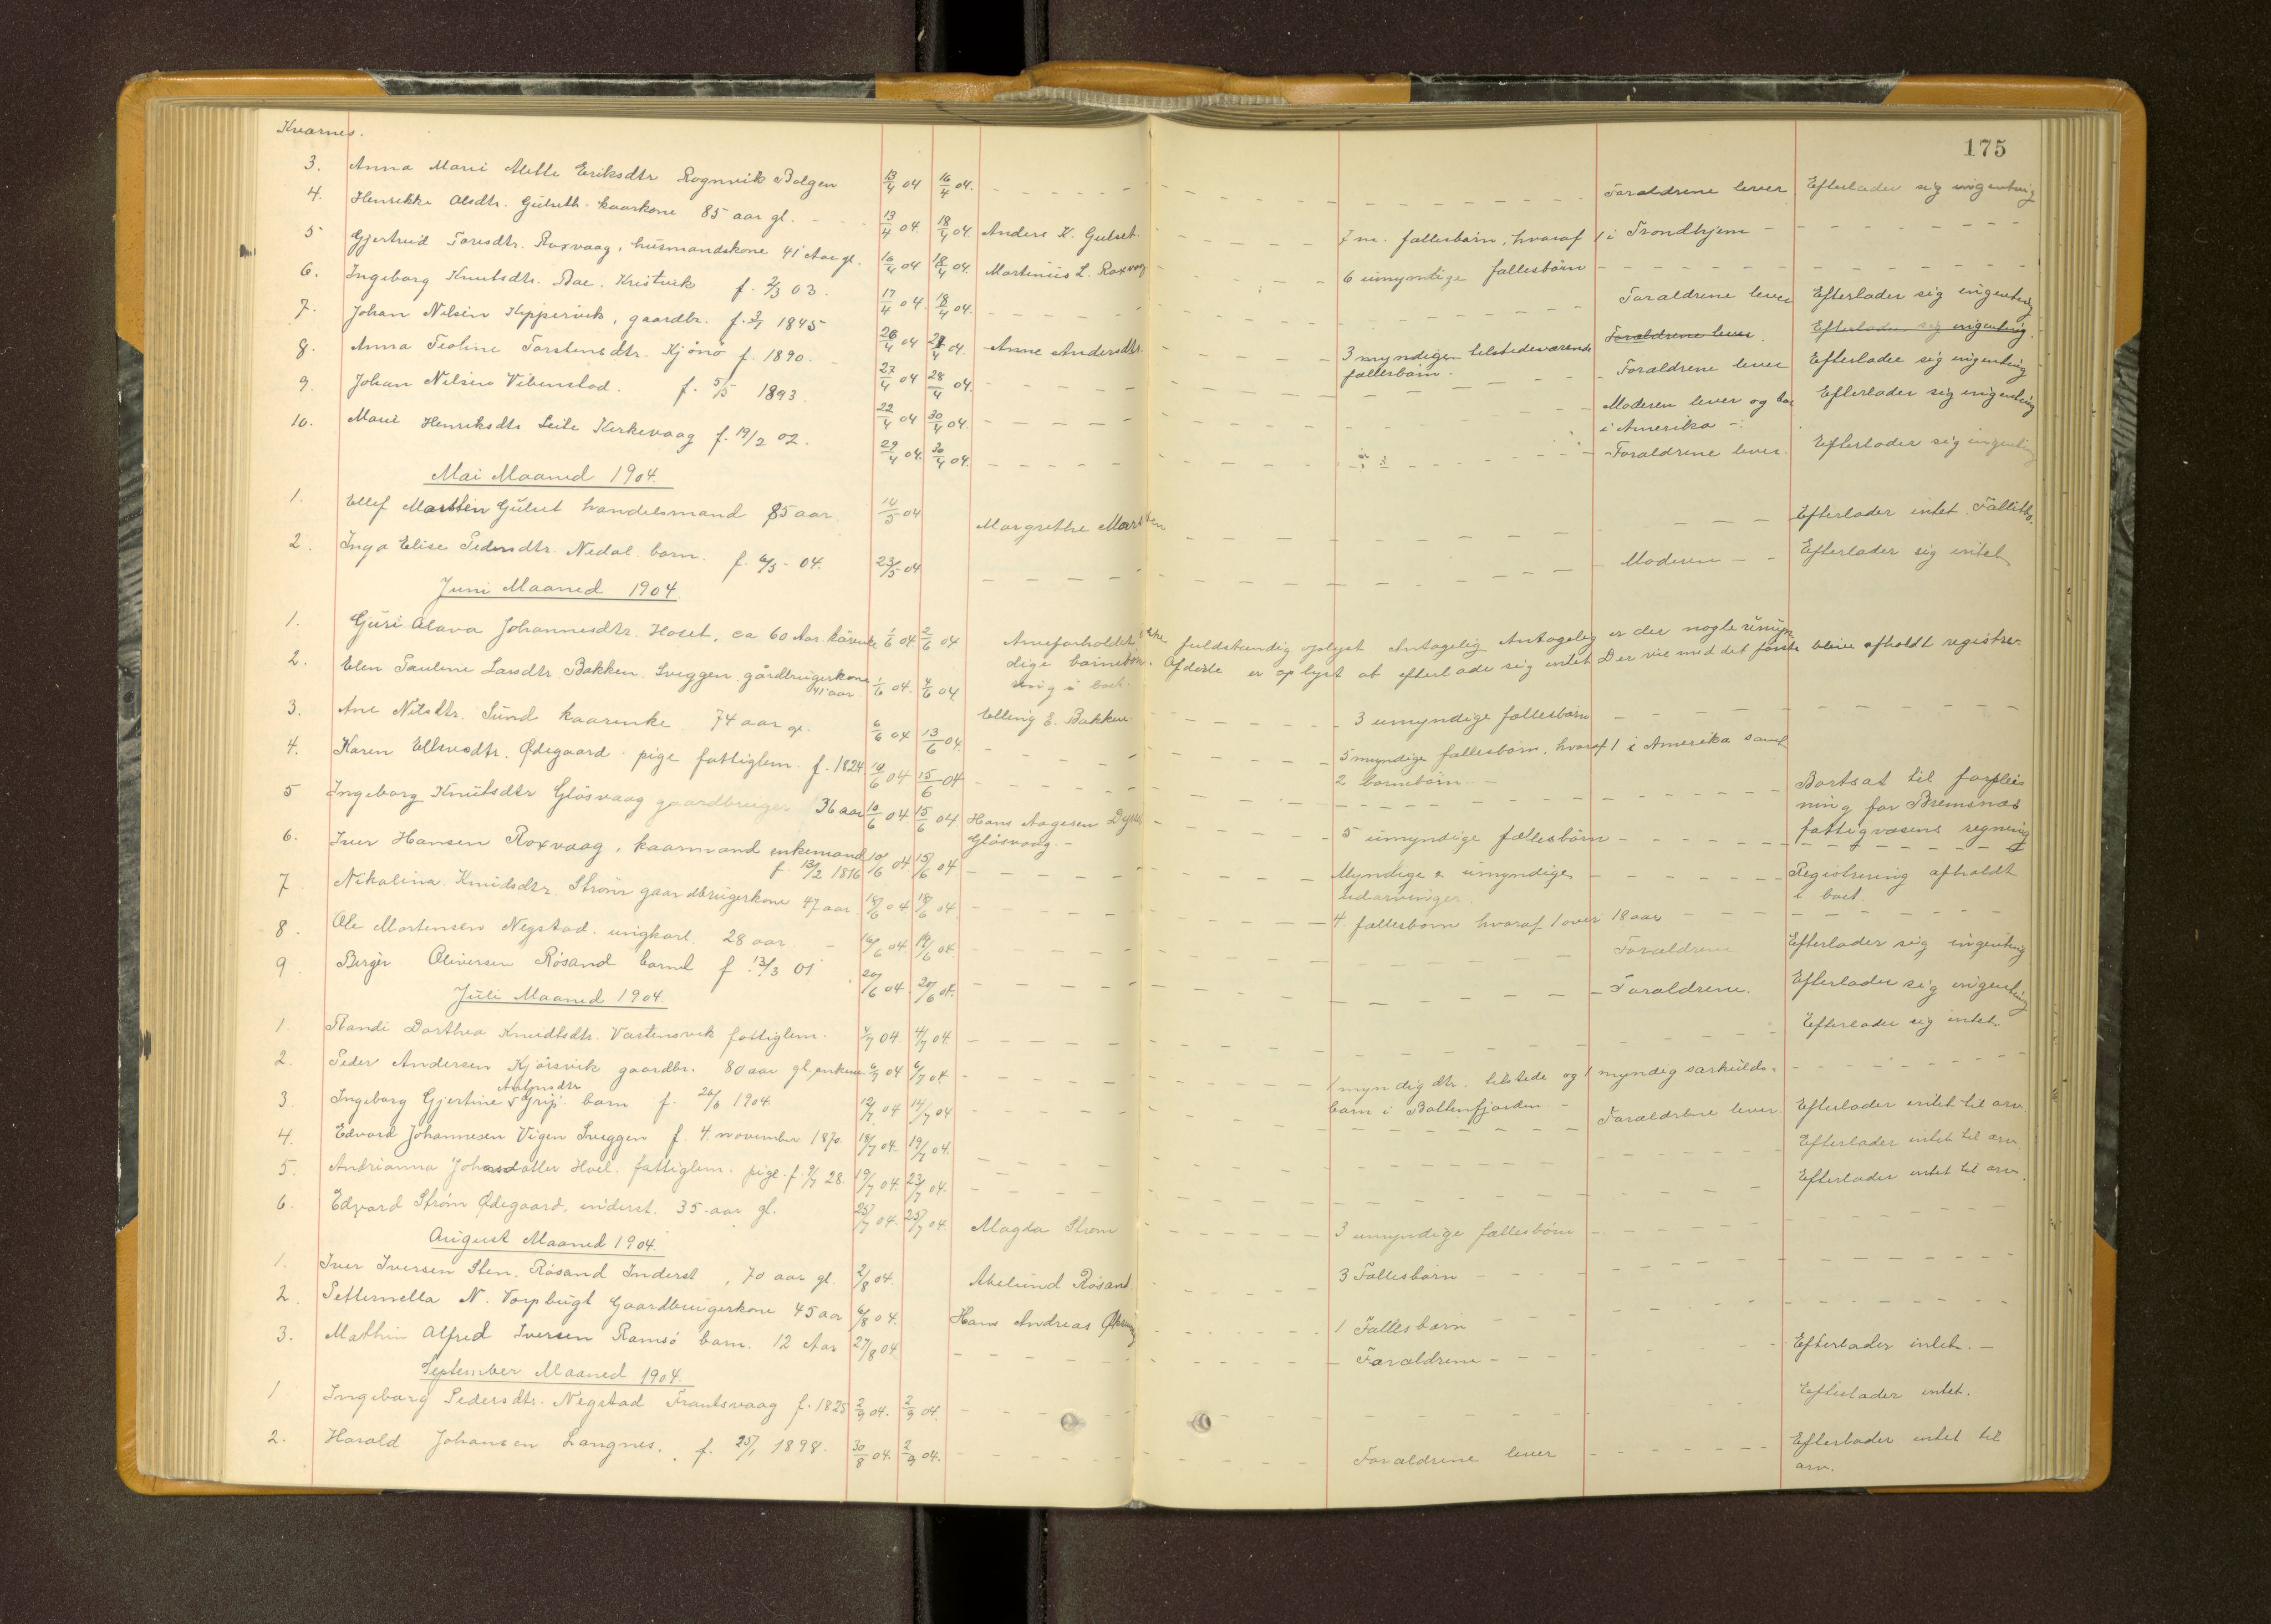 Kvarnes.
175
3. Anna Marie Mette Eriksdtr Rognvik Bolgen 13/4 04 16/4 04. Foraldrene lever Efterlader sig ingenting
4. Henrikke Olsdtr. Gulseth kaarkone 85 aar gl. 13/4 04. 18/4 04. Anders K. Gulset 7 m. fallesbørn, hvoraf 1 i Trondhjem
5 Gjertrud Toresdtr. Roxvaag, husmandskone 41 Aar gl. 16/4 04 18/4 04. Martinius L. Roxvaag 6 umyndige fallesbørn
6. Ingeborg Knutsdtr. Bae. Kristvik f. 2/3 03. 17/4 04. 18/4 04. Foraldrene lever Efterlader sig ingenting
7. Johan Nilsen Kippervik, gaardbr. f. 3/1 1845 26/4 04 27/4 04. Anne Andersdtr. 3 myndige tilstedeværende Foraldrene lever. Efterlader sig ingenting.
fallesbørn
8. Anna Teoline Torstensdtr. Kjønø f. 1890. 27/4 04 28/4 04. Foraldrene lever Efterlader sig ingenting
9. Johan Nilsen Vibenstad. f. 5/5 1893. 22/4 04 30/4 04. Moderen lever og bor Efterlader sig ingenting
i Amerika
10. Marie Henriksdtr Leite Kirkevaag f. 19/2 02. 29/4 04. 30/4 04. Foraldrene lever. Efterlader sig ingenting
Mai Maaned 1904.
1. Ellef Martten Gulset handelsmand 85 aar 14/5 04 Margrethe Efterlader intet. Fallitbo.
2. Inga Elise Pedersdtr. Nedal. barn. f. 6/5 - 04. 23/5 04 Moderen Efterlader sig intet
Juni Maaned 1904.
1. Guri Olava Johannesdtr. Hoset, ca 60 Aar kårenke 1/6 04. 2/6 04 Arveforholdet ikke fuldstændig oplyst Antagelig Antagelig er der nogle umyn
dige barnebørn. Afdøde er oplyst at efterlade sig intet Der vil med det første blive afholdt registre-
ring i boet.
2. Elen Pauline Larsdtr. Bakken. Sveggen. gårdbrugerkone 41 aar. 1/6 04. 4/6 04 Elling E. Bakken 3 umyndige fallesbørn
3. Ane Nilsdtr. Sund kaarenke 74 aar gl. 6/6 04 13/6 04. 5 myndige fallesbørn, hvoraf 1 i Amerika samt
2 barnebørn
4. Karen Ellevsdtr. Ødegaard. pige fattiglem. f. 1824. 10/6 04 15/6 04 Bortsat til forplei
ning for Bremsnæs
fattigvæsens regning
5 Ingeborg Knutsdtr Gløsvaag gaardbruger 36 aar 10/6 04 15/6 04 Hans Aagesen 5 umyndige fællesbørn
Gløsvaag.
6. Iver Hansen Roxvaag, kaarmand enkemand 10/6 04 15/6 04 Myndige & umyndige Registrering afholdt
f. 13/2 1816 udarvinger. i boet.
7 Nikolina Knudsdtr. Strøm gaardbrugerkone 47 aar 18/6 04. 4 fallesbørn hvoraf 1 over 18 aar
8. Ole Mortensen Negstad. ungkarl. 28 aar 16/6 04. 19/6 04. Foraldrene Efterlader sig ingenting
9. Birger Oliversen Røsand barnel f. 13/3 01 20/6 04. 20/6 04. Foraldrene. Efterlader sig ingenting
Juli Maaned 1904.
1. Randi Dorthea Knudtsdtr. Vastensvik fattiglem. 4/7 04. 4/7 04. Efterlader sig intet.
2. Peder Andersen Kjørsvik gaardbr. 80 aar gl. enkem. 6/7 04 6/7 04. 1 myndig dtr. tilstede og 1 myndig sarkulds-
barn i Battenfjorden
3. Ingeborg Gjertine Grip. barn f. 26/6 1904. 12/7 04 14/7 04 Foraldrene lever Efterlader intet til arv
4. Edvard Johannesen Vigen Sveggen f. 4. november 1870. 18/7 04. 19/7 04. Efterlader intet til arv
5. Andrianna Johansdatter Hoel. fattiglem. pige f. 9/7 28. 19/7 04. 23/7 04. Efterlader intet til arv.
6. Edvard Strøm Ødegaard, inderst. 35 aar gl. 25/7 04. 25/7 04 Magda Strøm 3 umyndige fallesbørn
August Maaned 1904.
1. Iver Iversen Sten. Røsand Inderst, 70 aar gl. 2/8 04. Røsand 3 Fallesbørn
2. Petternella N. Vorpbugt Gaardbrugerkone 45 aar 6/8 04. Hans Andreas 1 Fallesbarn
3. Mathin Alfred Iversen Ramsø barn. 12 Aar 27/8 04. Foraldrene Efterlader intet.
September Maaned 1904.
1 Ingeborg Pedersdtr. Negstad Frantsvaag f. 1825 2/9 04. 2/9 04. Efterlader intet.
2. Harald Johansen Langnes. f. 25/1 1898. 30/8 04. 2/9 04. Foraldrene lever Efterlader intet til
arv.